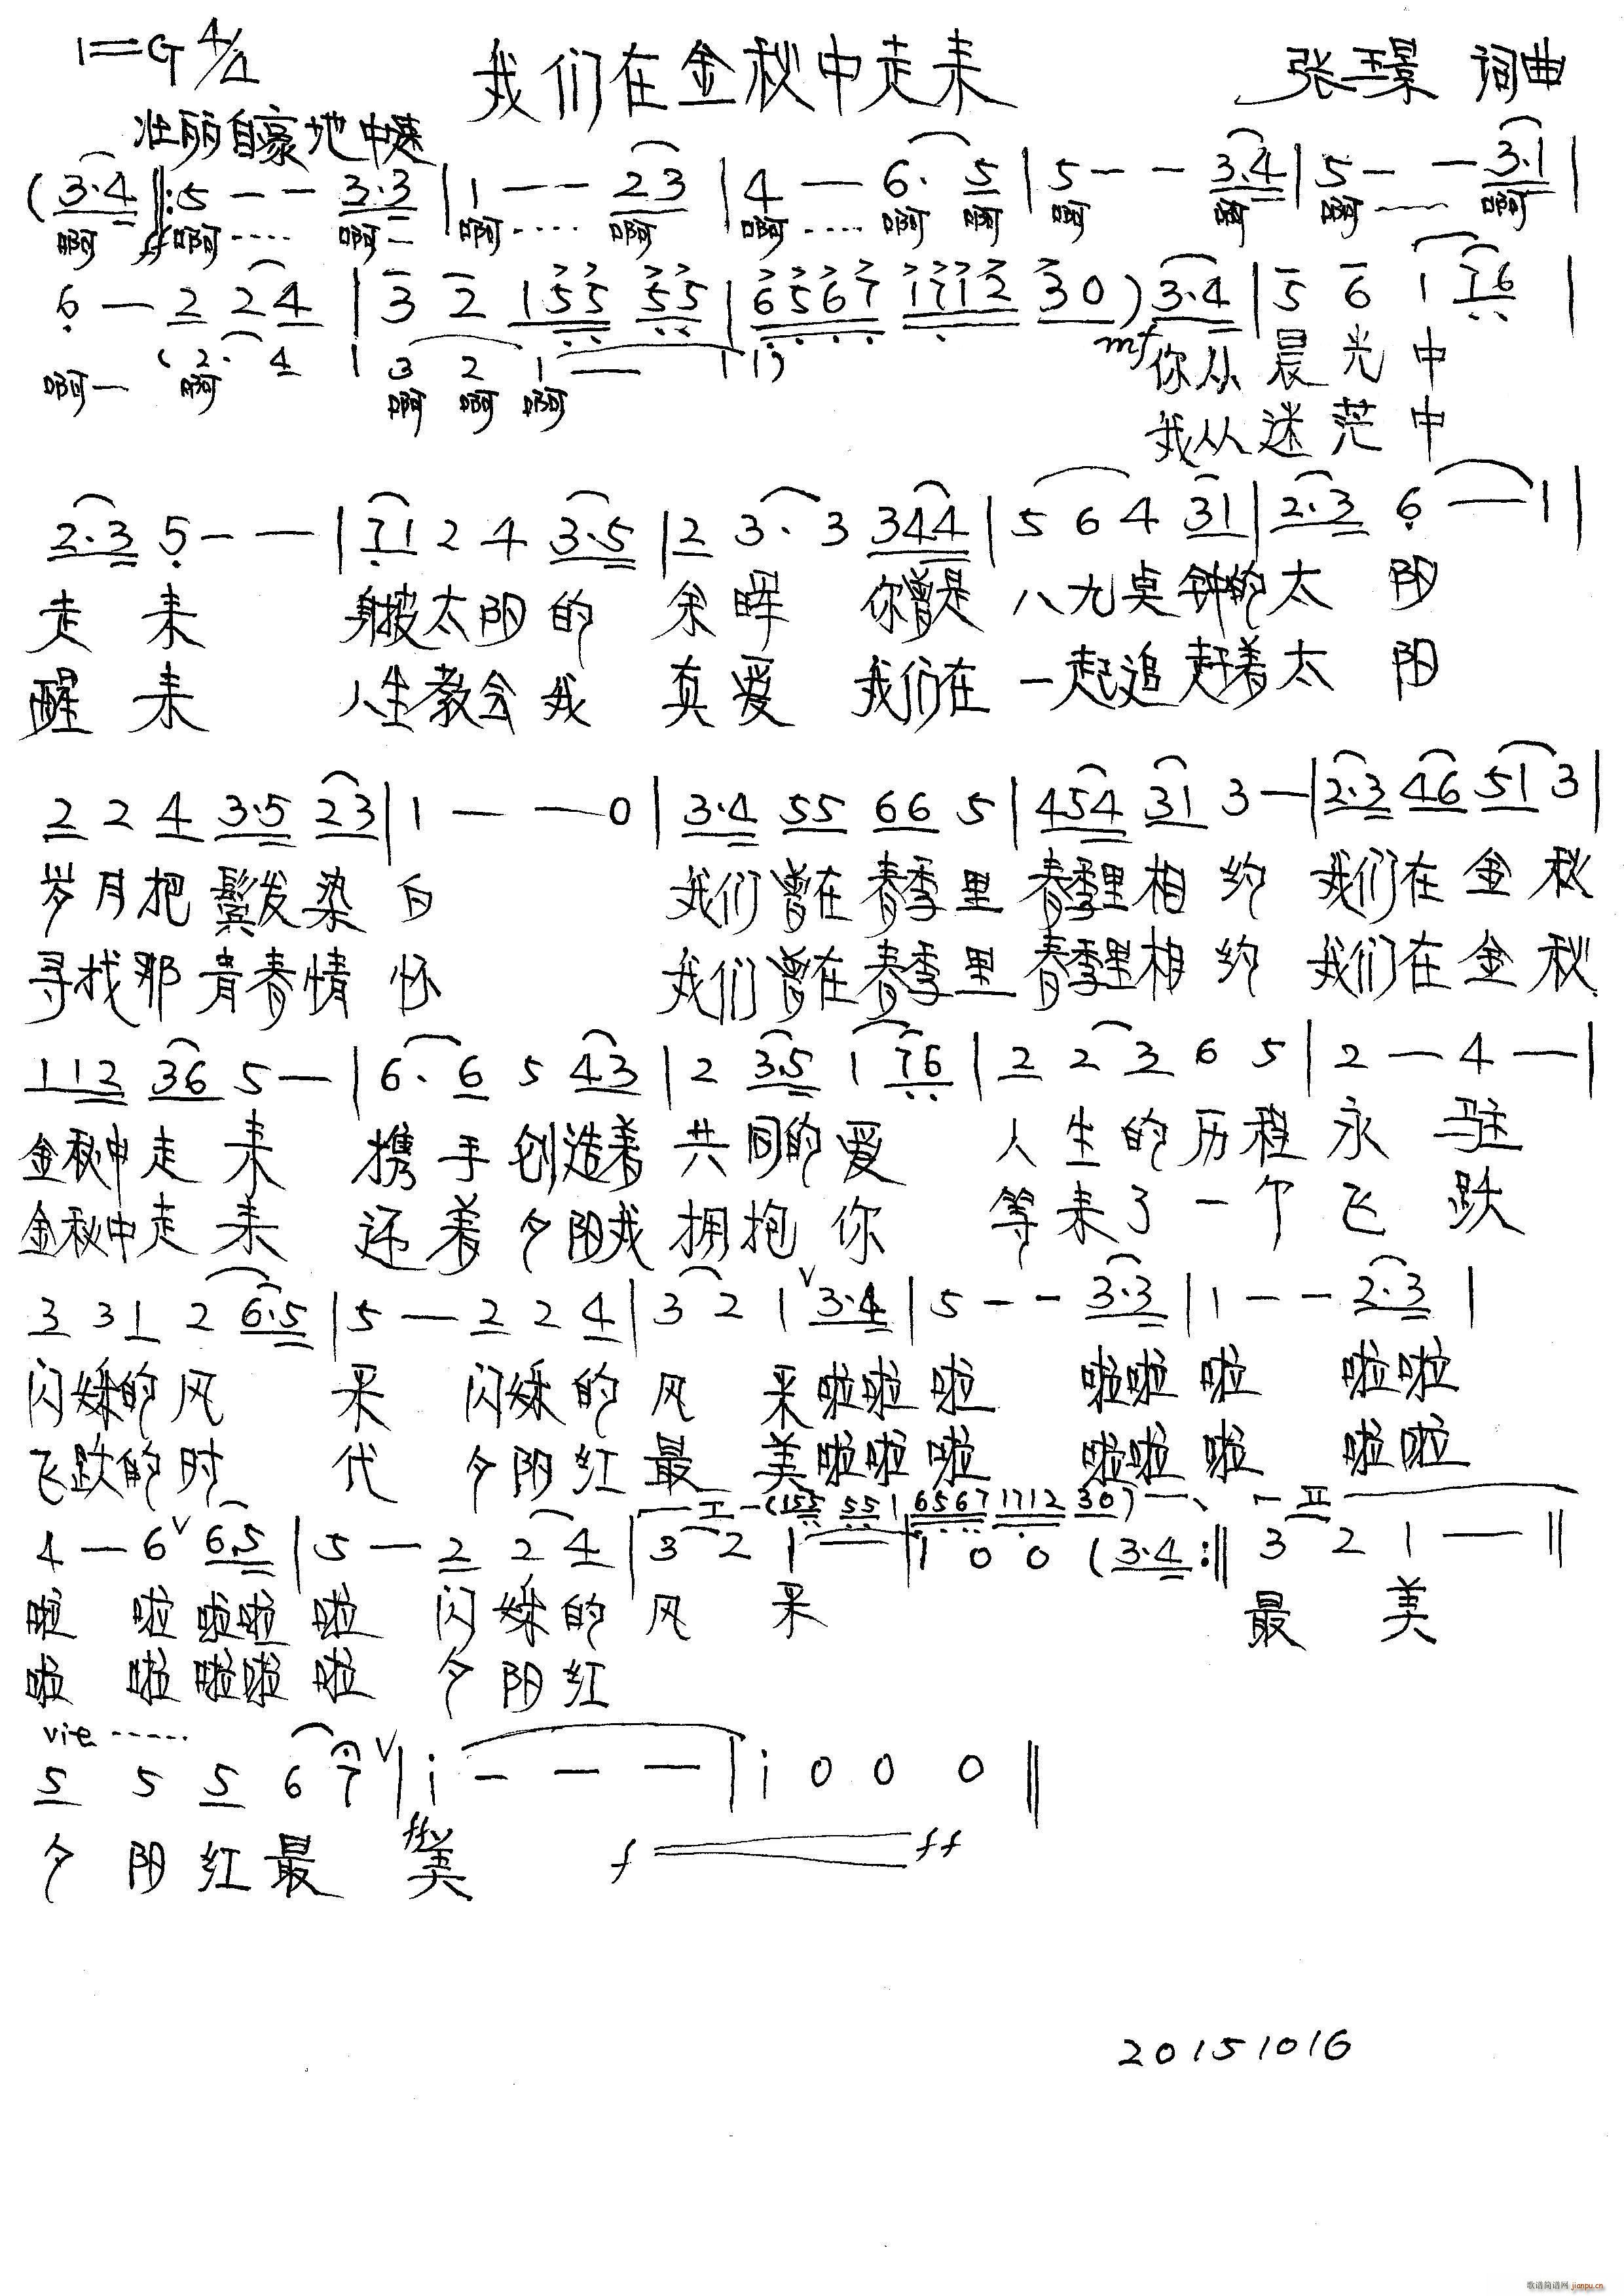 1=G 4/4 我们在金秋中走来 张玉景 词曲
壮丽自豪地 中速
(3·4 ‖: 5 - - 3·3 | 1 - - 2 3 | 4 - 6· 5 | 5 - - 3·4 | 5 - - 3·1 |
啊 ff 啊····· 啊- 啊····· 啊 啊····· 啊 啊 啊 啊 啊····· 啊
6 - 2 2 4 | 3 2 1 5 5 5 5 | 6 5 6 7 1 7 1 2 3 0 ) 3·4 | 5 6 1 7 6 |
(2· 4 | 3 2 1 - | 1)
啊- 啊 啊 啊 啊
mf 你从 晨 光 中
我从 迷 茫 中
2·3 5 - - | 7 1 2 4 3·5 | 2 3· 3 3 4 4 | 5 6 4 3 1 | 2·3 6 - 1 |
走 来 身披太阳的 余 晖 你曾是 八九点钟的太 阳
醒 来 人生教会我 真 爱 我们在 一起追赶着太 阳
2 2 4 3·5 2 3 | 1 - - 0 | 3·4 5 5 6 6 5 | 4 5 4 3 1 3 - | 2·3 4 6 5 1 3 |
岁月把鬓发染白 我们曾在春季里 春季里相约 我们在金秋
寻找那青春情怀 我们曾在春季里 春季里相约 我们在金秋
1 1 2 3 6 5 - | 6· 6 5 4 3 | 2 3·5 1 7 6 | 2 2 3 6 5 | 2 - 4 - |
金秋中走 来 携 手 创造着 共 同的 爱 人生的历程永 驻
金秋中走 来 还 着 夕阳我 拥 抱 你 等来了一个飞 跃
3 3 1 2 6·5 | 5 - 2 2 4 | 3 2 1 ∨ 3·4 | 5 - - 3·3 | 1 - - 2·3 |
闪烁的风 采 闪烁的 风 采啦啦 啦 啦啦 啦 啦啦
飞跃的时 代 夕阳红 最 美啦啦 啦 啦啦 啦 啦啦
I (1 5 5 5 5 | 6 5 6 7 1 7 1 2 3 0) II
4 - 6 ∨ 6·5 | 5 - 2 2 4 | 3 2 1 - | 1 0 0 (3·4 :‖ 3 2 1 - ‖
啦 啦 啦啦 啦 闪烁的 风 采 最 美
啦 啦 啦啦 啦 夕阳红
5 5 5 6 7 ∨ | i - - - | i 0 0 0 ‖
夕 阳 红 最 美 f ff
20151016
歌谱简谱网 jianpu.cn